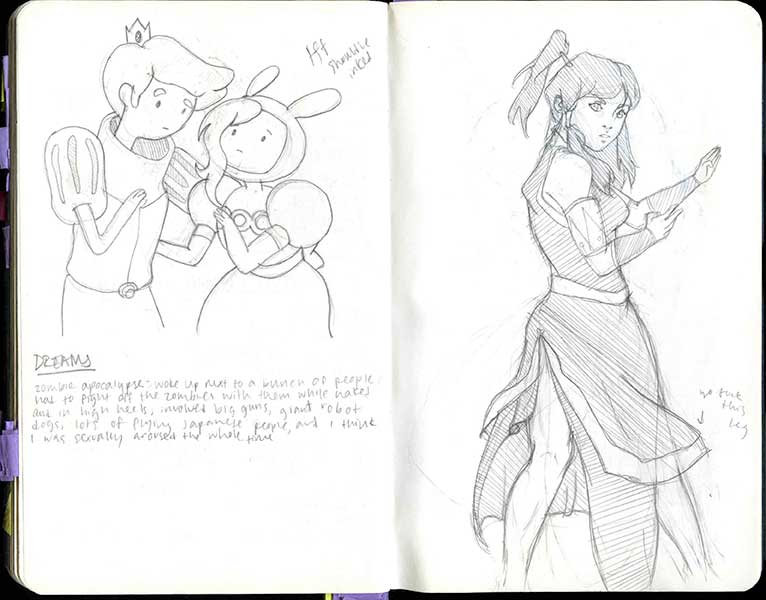 shoulda
inked
DREAMS
zombie apocalypse: woke up next to a bunch of people,
had to fight off the zombies with them while naked
and in high heels, involved big guns, giant robot
dogs, lots of flying Japanese people, and I think
I was sexually aroused the whole time
this
leg